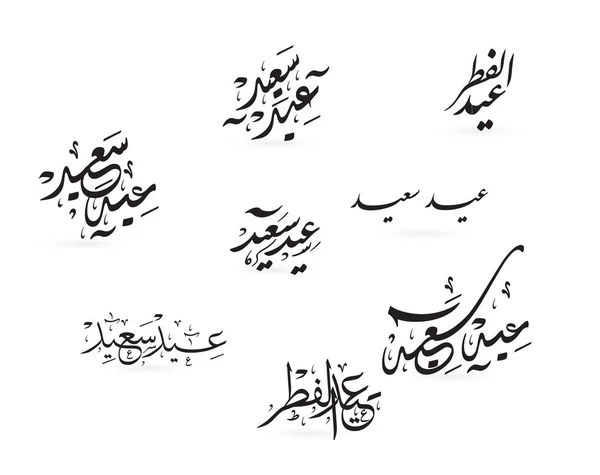 عيد سعيد
عيد الفطر
عيد سعيد
عيد سعيد
عيد سعيد
عيد سعيد
عيد سعيد
عيد الفطر